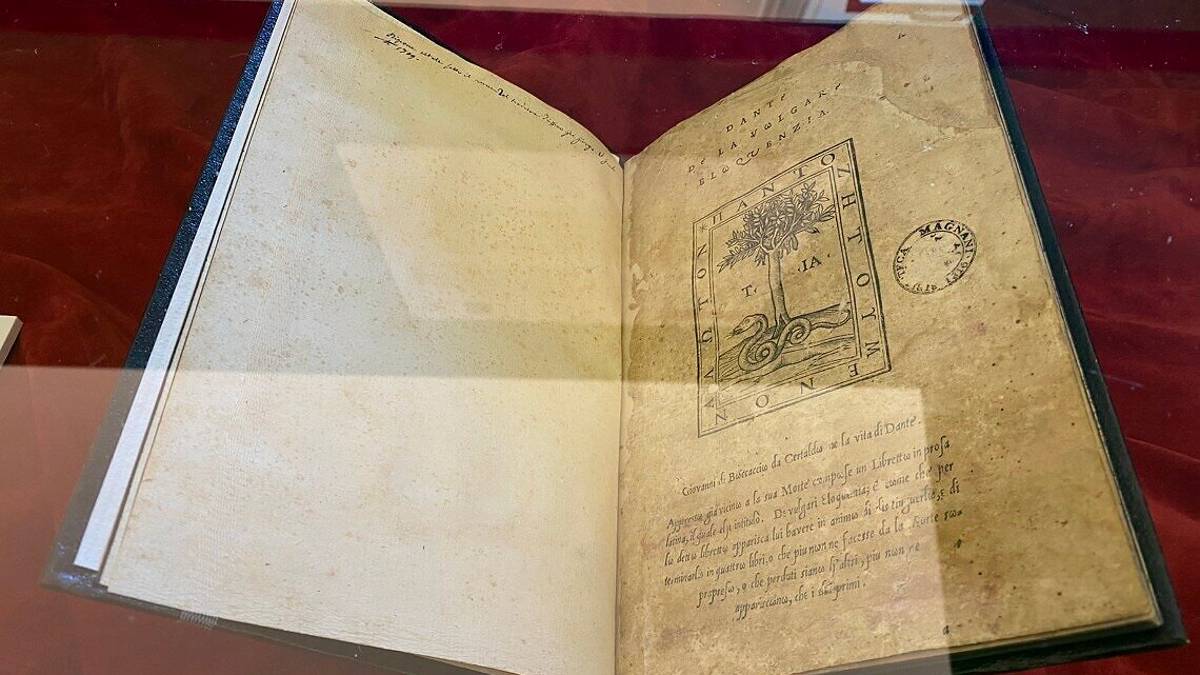 1799.
DANTε
Dε LA VωLGARε
εLωQUENZIA
* ΠΑΝ ΤΟ ΖΗΤΟΥΜΕΝΟΝ ΑΛΩΤΟΝ
T. .IA.
MAGNANI
Giovanni di Bωccacciω da Certaldω ne la vita di Dante.
Appressω già vicinω a la sua Mωrte cωmpωse un Librettω in prosa
latina, il quale elji intitulò. De vulgari εloquentia; ε cωme che per
lω dettω librettω apparisca lui havere in animω di distinguerlω, ε di
terminarlω in quattrω libri, o che più nωn ne facesse da la Mωrte sω-
presω, o che perduti sianω lj'altri, più nωn ne
appariscωnω, che i primi.
a